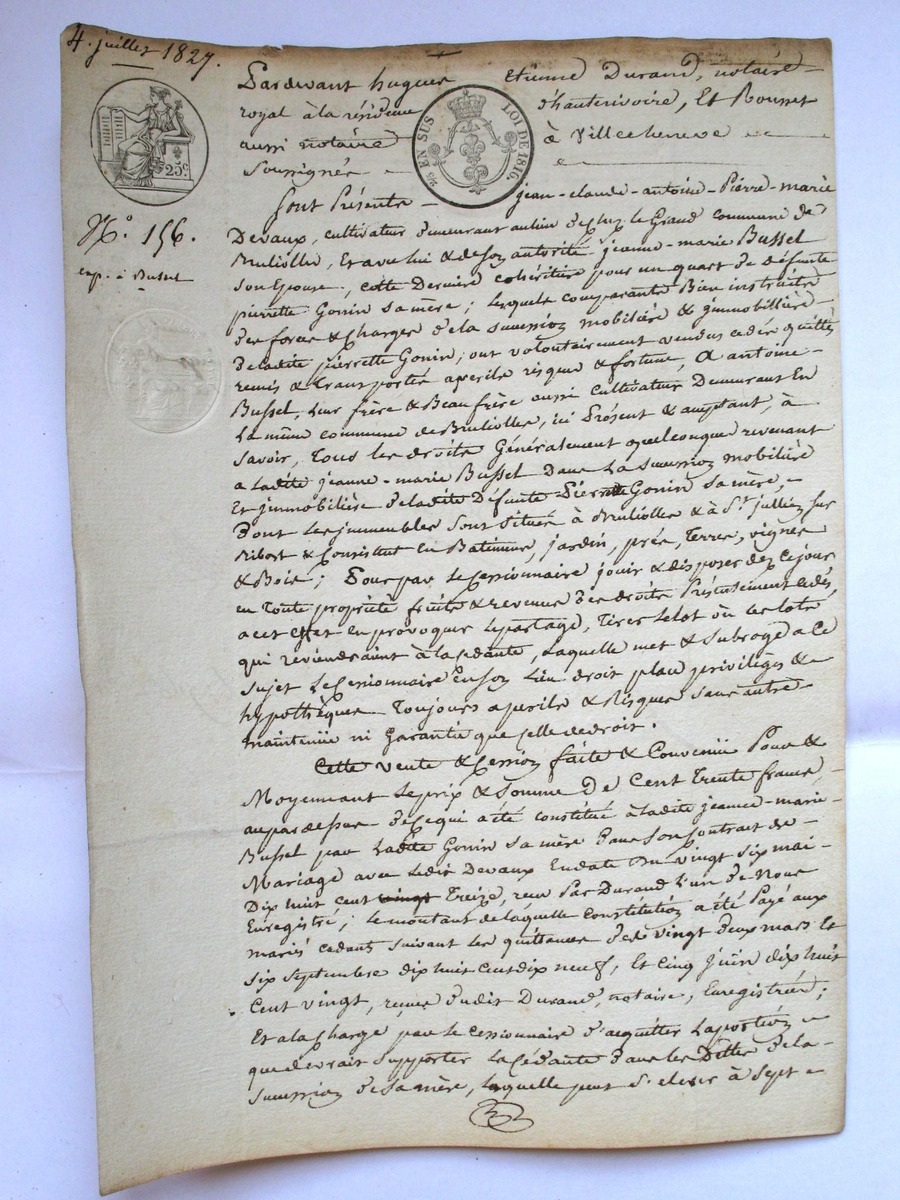 4. juillet 1827.
Pardevant hugues Etienne Durand, notaire
royal à la résidence d'hauterivoire, Et Rousset
aussi notaire à Villecheneve
Soussignés
25 c
25 EN SUS LOI DE 1816.
N.o 156.
exp. à Bussel
Sont Présents jean-claude-antoine-Pierre-marie
Devaux, cultivateur demeurant au lieu de chez le Grand commune de
Bruliolles, Et avec lui & de son autorité jeanne-marie Bussel
son Epouse, cette Derniere cohéritière pour un quart de défunte
pierrette Gonin sa mère; lesquels comparants Bien instruits
des forces & Charges de la succession mobilière & jmmobilière
de ladite pierrette Gonin, ont volontairement vendus cédés quittés
remis & transportés a perils risques & fortune, A antoine
Bussel, Leur frère & Beau frère aussi cultivateur Demeurant En
La même commune de Bruliolles, ici Présent & acceptant, à
Savoir, Tous les droits Généralement quelconque revenant
a Ladite jeanne-marie Bussel Dans La succession mobilière
Et jmmobilière de ladite Défunte Pierrette Gonin sa mère,
Dont Les jmmeubles sont situés à Bruliolles & à St. jullien sur
Ribost & Consistent En Batiments, jardin, prés, Terres, vignes
& Bois; Pour par le Cessionnaire jouir & disposer dez ce jour
en Toute propriété fruits & revenus des droits Présentement cédés,
a cet Effet En provoquer le partage, Tirer le lot où les lots
qui reviendraient à la Cédante, Laquelle met & subroge a Ce
sujet Le Cessionnaire En son Lieu droit place privilèges &
hypothèques Toujours a perils & Risques sans autre
maintenüe ni Garantie que Celle de droit.
Cette vente & Cession faite & Convenüe Pour &
Moyennant Le prix & Somme De Cent Trente francs,
au par dessus de Ce qui a été constitué à ladite jeanne-marie
Bussel par Ladite Gonin sa mère dans Son Contrat de
Mariage avec Ledit Devaux En date du vingt six mai
Dix huit cent vingt Treize, reçu Par Durand L'un de Nous
Enregistré; Le montant de laquelle Constitution a été Payé aux
mariés cédants suivant Les quittances des vingt deux mars Et
six septembre dix huit Cent dix neuf, Et Cinq juin dix huit
Cent vingt, reçues dudit Durand, notaire, Enregistrées;
Et à la Charge par le Cessionnaire d'acquitter La portion
que devrait supporter La Cédante dans les Dettes de la
succession de sa mère, Laquelle peut S'elever à sept